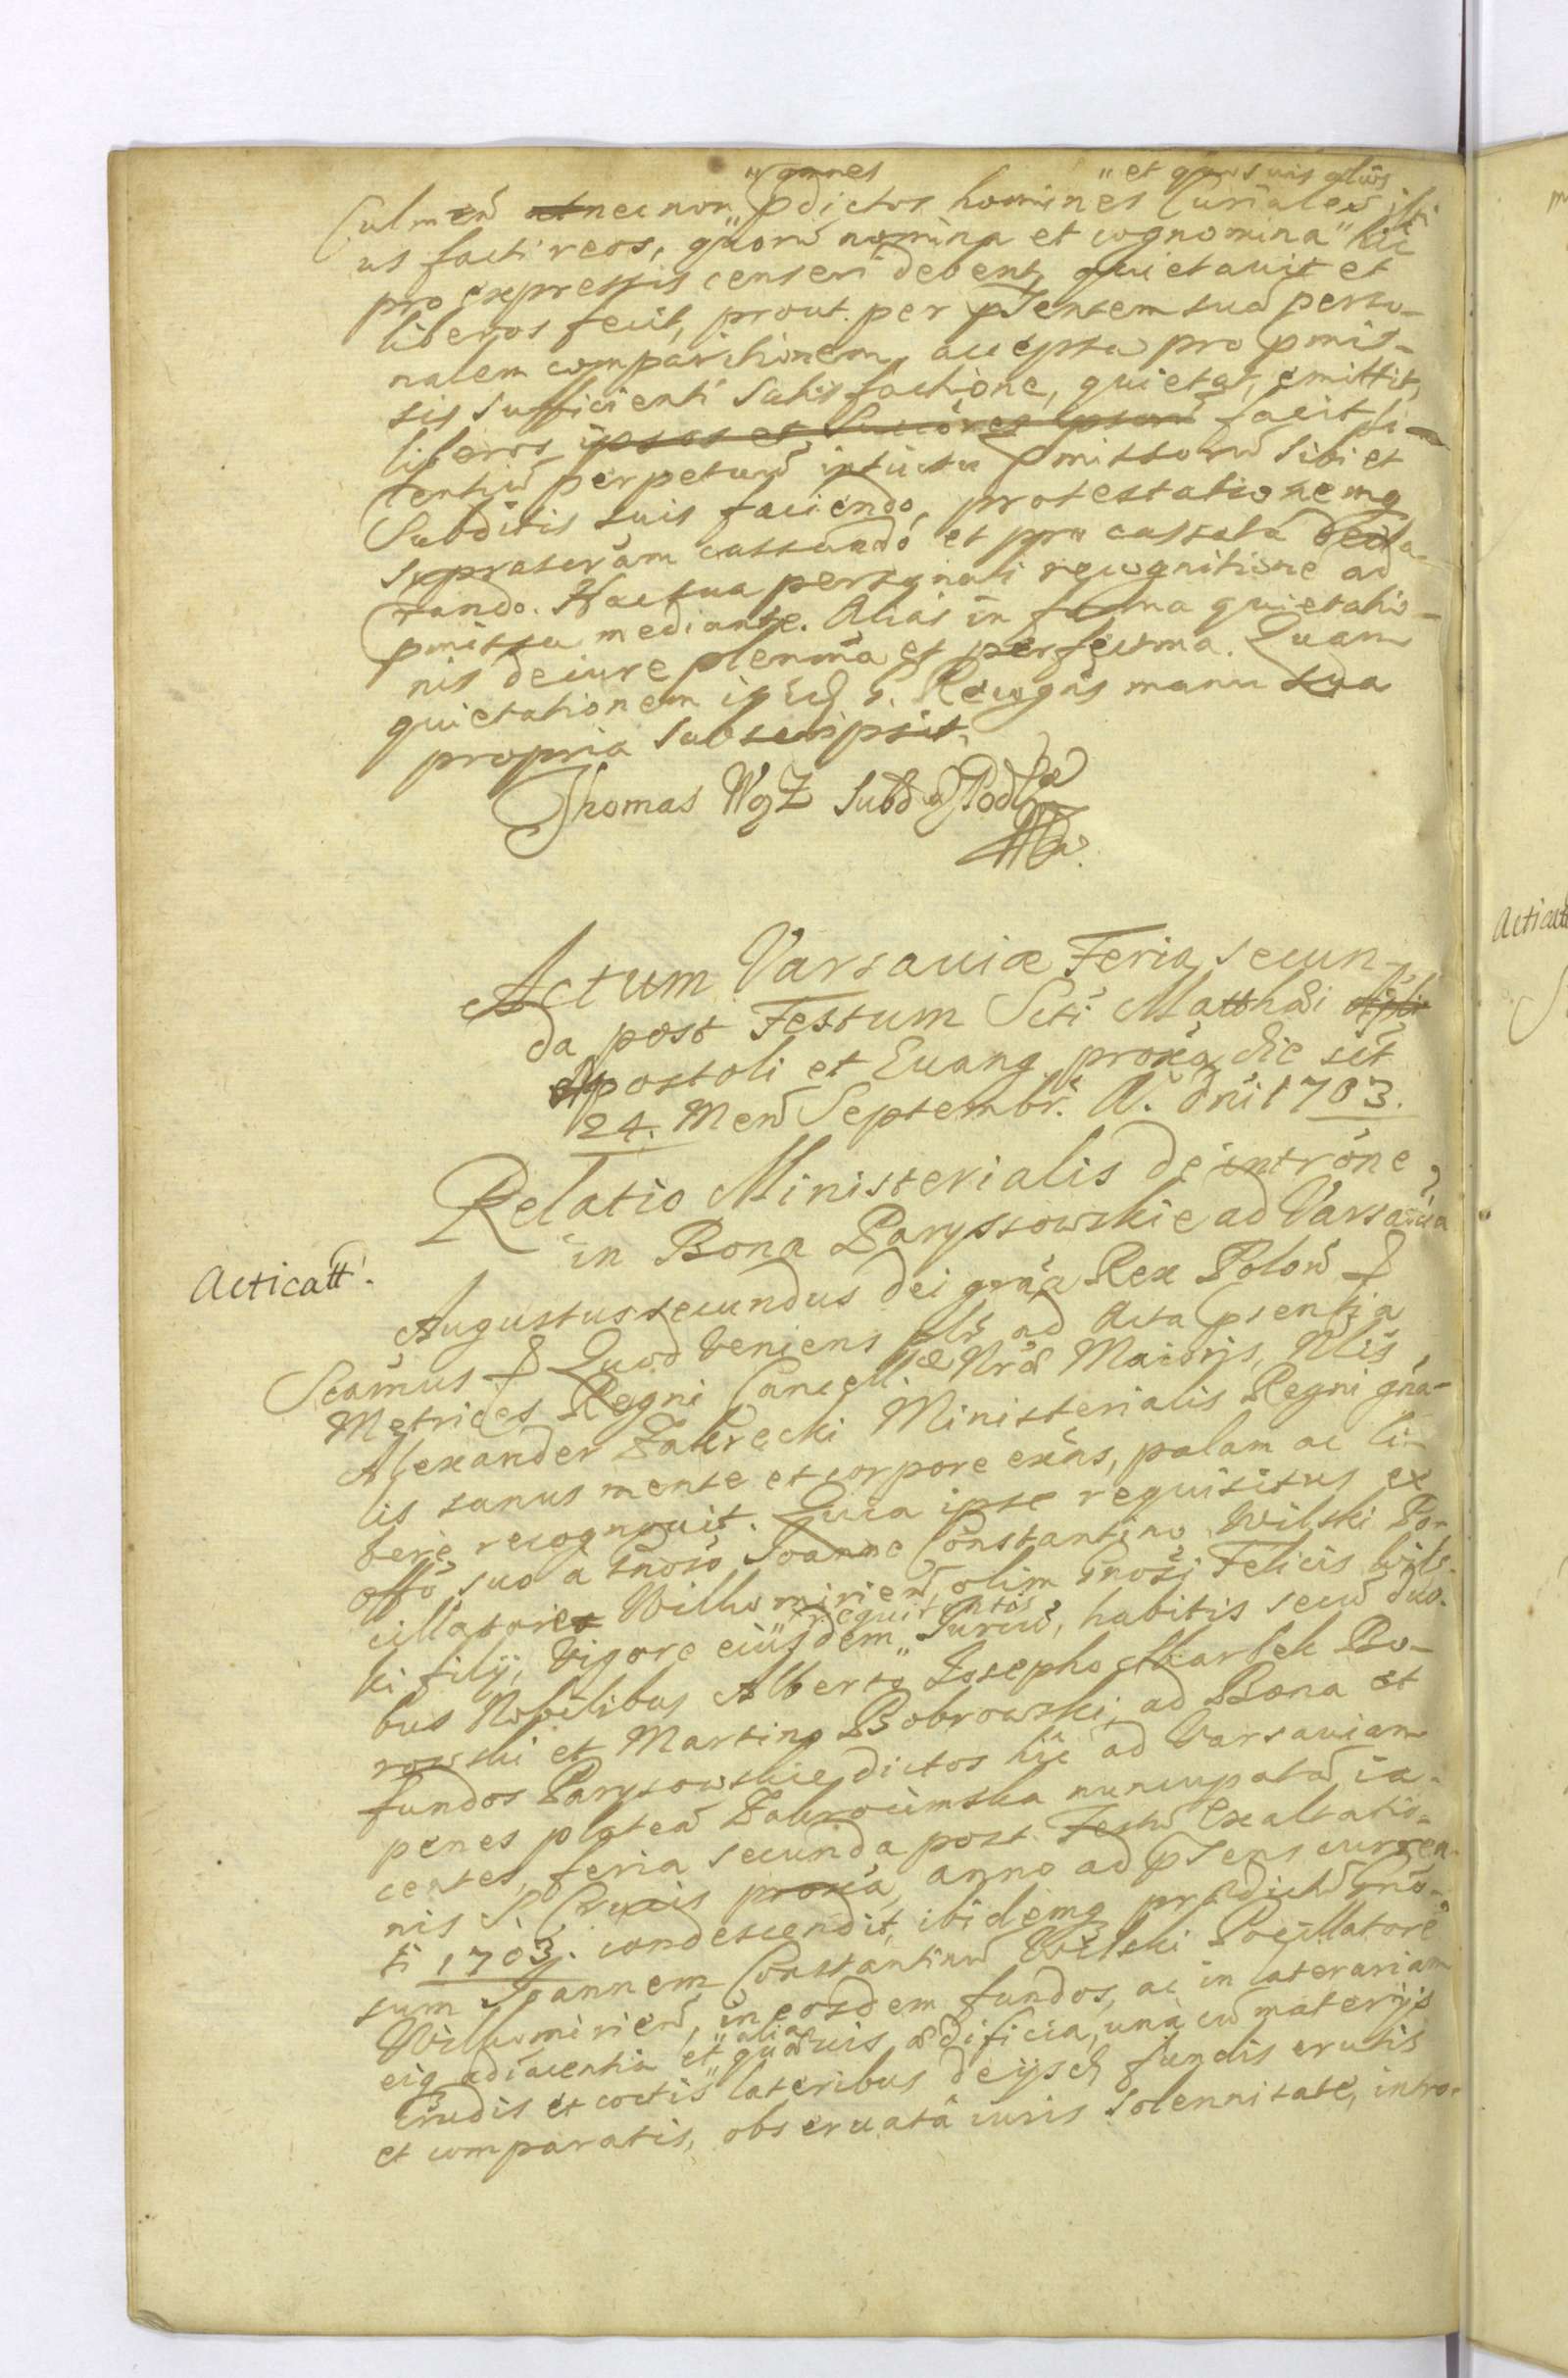 omnes et quosvis alios
Culmeñ et nec non pdictos homines Curiales
us facti reos, quorũ nomina et cognomina hic
pro expressis censeri debent, quietavit et
liberos fecit, prout per pñtem suã perso-
nalem comparitionem, accepta pro pmis-
sis sufficienti satisfactione, quietat, emittit,
liberos ipsos et ipsorũ facit si-
lentiũ perpetuũ intuitu pmissorũ sibi et
Subditis suis faciendo, protestationemq
suprascram cassando et pro cassata decla-
rando. Hac sua personali recognitione ad
pmissa mediante. Alias in forma quietatio-
nis de iure plenrima et perfectrma. Quam
quietationem manu sua
propria subscripsit.
Thomas
Actum Varsaviæ Feria secun-
da post Festum Scti Matthæi
Apostoli et Evang. proxa die sct
24. Meñ Septembr. A. Dni 1703.
Relatio Ministerialis de introne
in Bona Paryssowskie ad Varsaviã
Acticatt.
Augustus secundus Dei grãa Rex Poloñ
Scamus Quod veniens ad Acta psentia
Metrices Regni Cancell. Nræ Maioris, Nlis
Alexander Zakrecki Ministerialis Regni gña-
lis sanus mente et corpore exñs, palam ac li-
bere recognovit. Quia ipse requisitus ex
offo suo a Gnoso Joanne Constantino Wilski Po-
cillatore Wilkomirieñ, olim Gnosi Felicis Wils-
requirentis
ki filij, vigore eiusdem Juriũ, habitis secũ duo-
bus Nobilibus Alberto Josepho Skarbek Bo-
rowski et Martino Bobrowski, ad Bona et
fundos Parysowskie dictos hic ad Varsaviam
penes plateã Zakrocimska nuncupatã ia-
centes, feria secunda post Festũ Exaltatio-
nis S. Crucis proxa, anno ad psens curren-
ti 1703. condescendit, ibidemq prædictũ Gno-
sum Joannem Constantinũ Wilski Pocillatore
Wilkomirieñ, in eosdem fundos, ac in laterariam
alia
eiq adiacentia et quævis ædificia, unà cũ materijs
crudis et coctis lateribus de ijsd fundis erutis
et comparatis, observatâ iuris solennitate, intro-